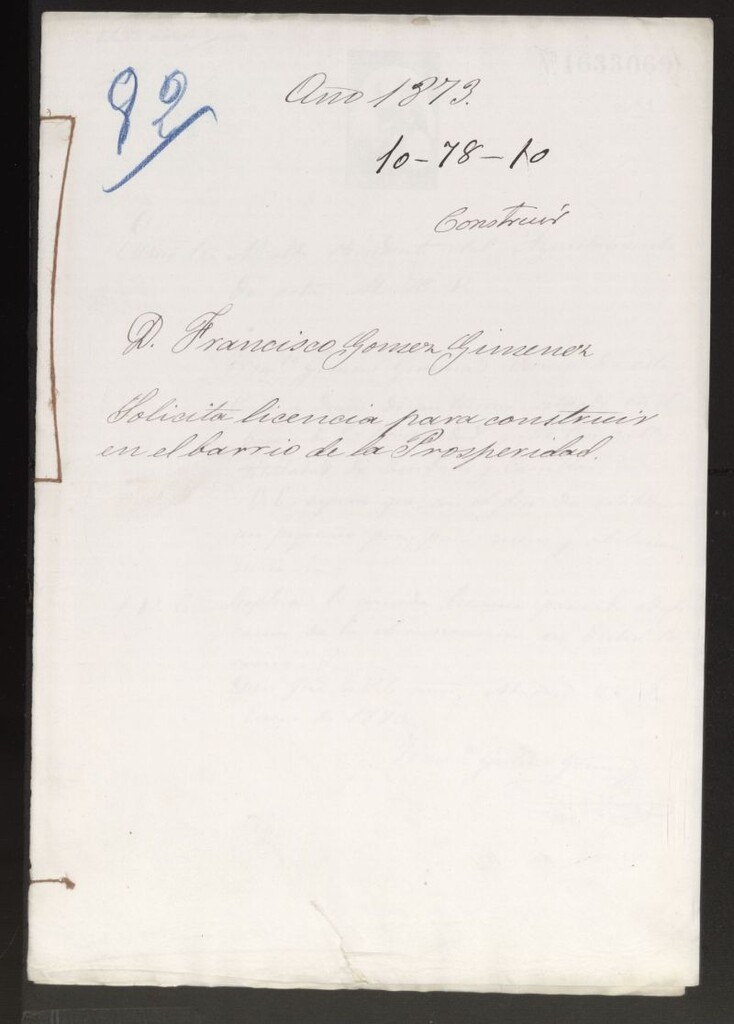 92
Año 1873.
10-78-10
Construir
D. Francisco Gomez Gimenez
Solicita licencia para construir
en el barrio de la Prosperidad.